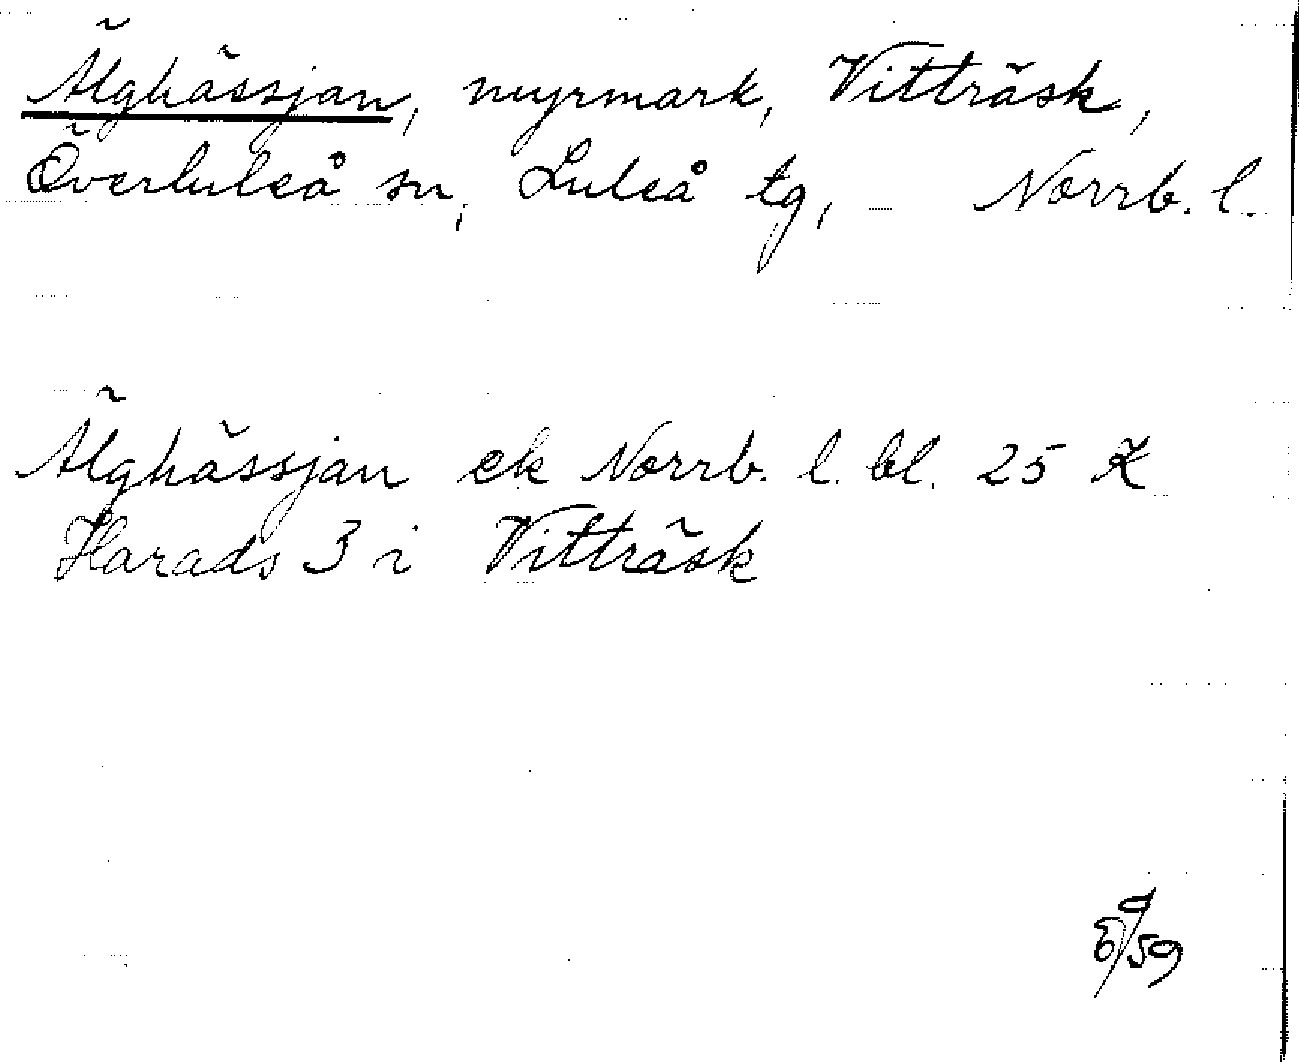 Älghässjan, myrmark, Vitträsk,
Överluleå sn, Luleå tg, Norrb. l.
Älghässjan ek Norrb. l. bl. 25 K
Harads 3 i Vitträsk